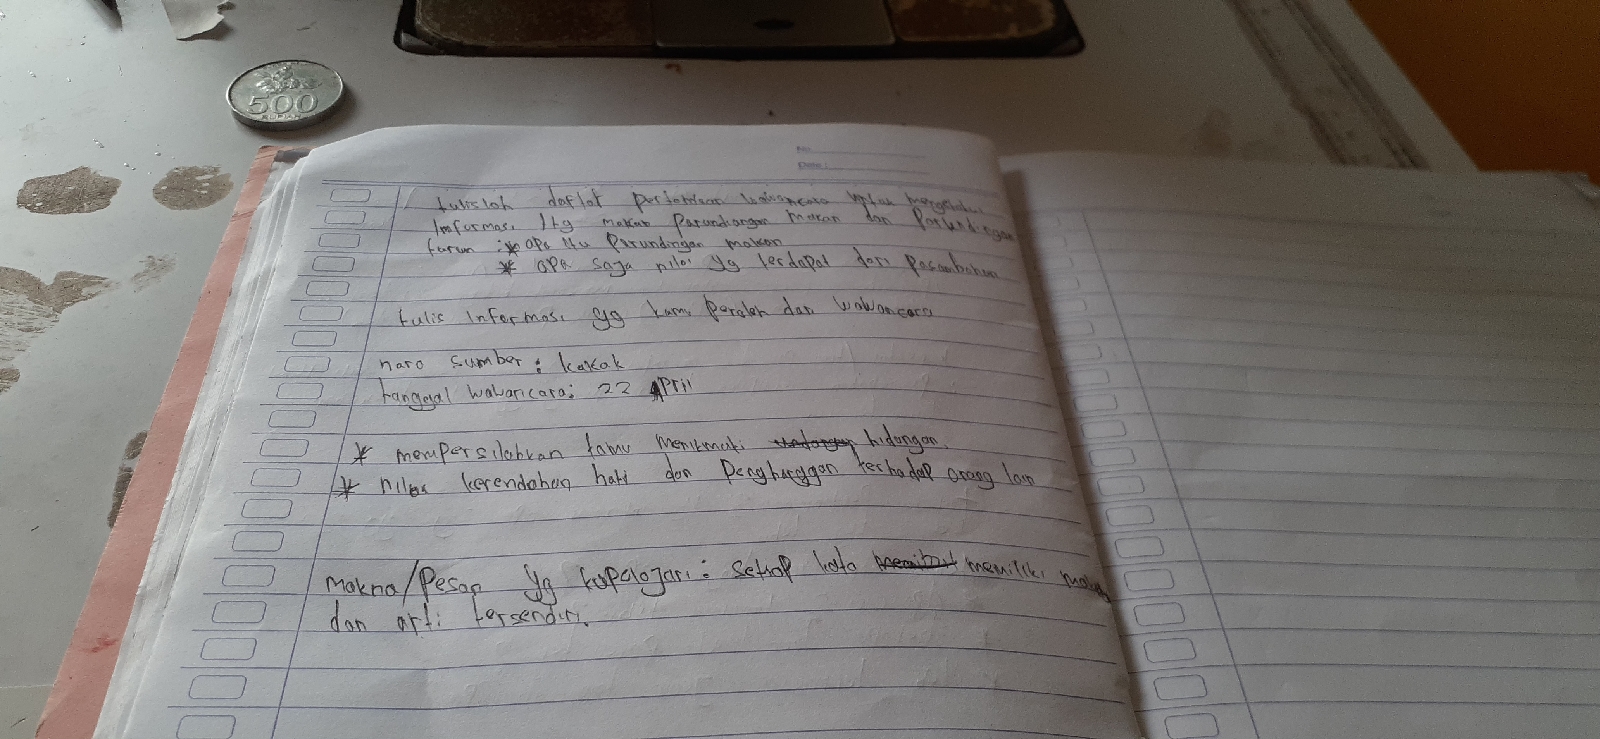 500
RUPIAH
No:
Date:
tulislah daflat pertanyaan wawancara untuk mengetahui
Informasi ttg makna Parundiangan makan dan Parundingan
turun : * apa itu Parundingan makan
* apa saja nilai yg terdapat dari Pasambahan
tulis informasi yg kamu peroleh dari wawancara
nara sumber : kakak
tanggal wawancara: 22 April
* mempersilahkan tamu menikmati hidangan.
* nilai kerendahan hati dan Penghanggan terhadap orang lain
makna/Pesan yg kapelajari : setiap kata memiliki makna
dan arti tersendiri.